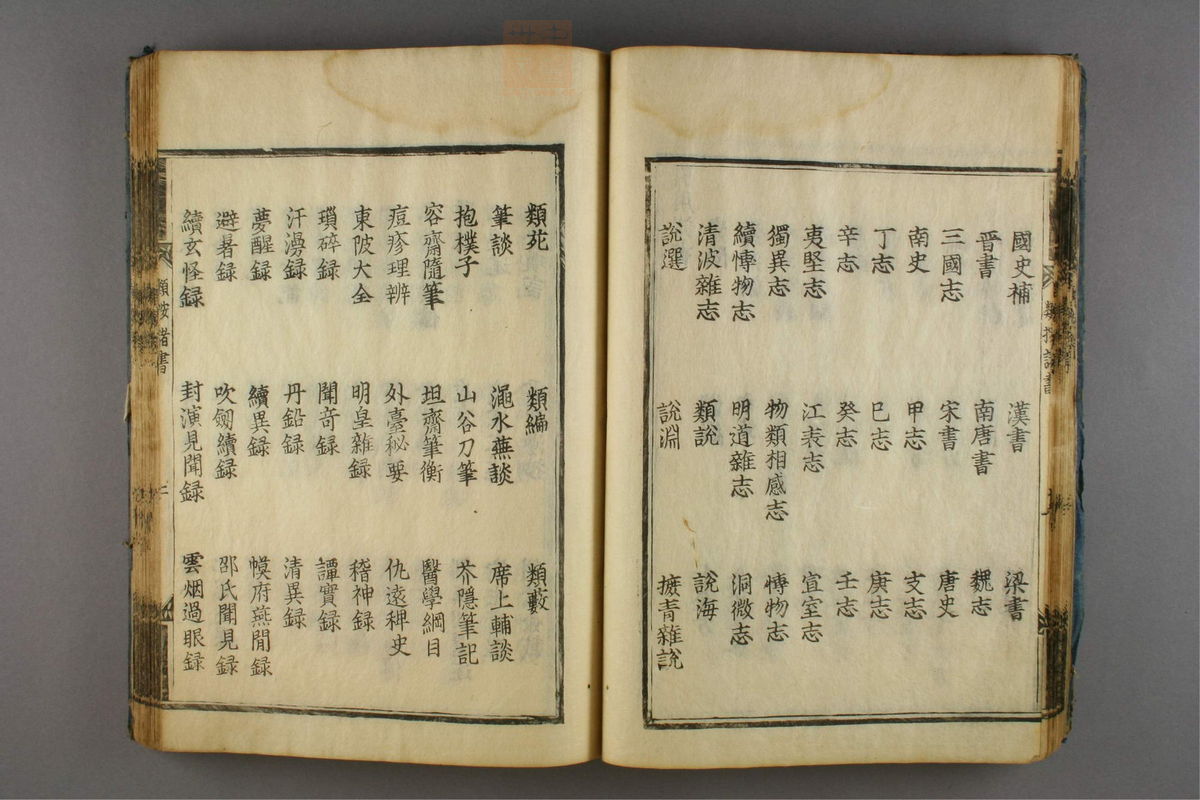 國史補 漢書 梁書
晋書 南唐書 魏志
三國志 宋書 唐史
南史 甲志 支志
丁志 巳志 庚志
辛志 癸志 壬志
夷堅志 江表志 宣室志
獨異志 物類相感志 愽物志
續愽物志 明道雜志 洞微志
清波雜志 類說 說海
說選 說淵 摭青雜說
類苑 類編 類藪
筆談 澠水燕談 席上輔談
抱樸子 山谷刀筆 芥隱筆記
容齋隨筆 坦齋筆衡 醫學綱目
痘疹理辨 外臺秘要 仇遠稗史
東陂大全 明皇雜録 稽神録
瑣碎録 聞竒録 譚實録
汗漫録 丹鉛録 清異録
夢醒録 續異録 幙府燕閒録
避暑録 吹劒續録 邵氏聞見録
續玄怪録 封演見聞録 雲烟過眼録
類按諸書